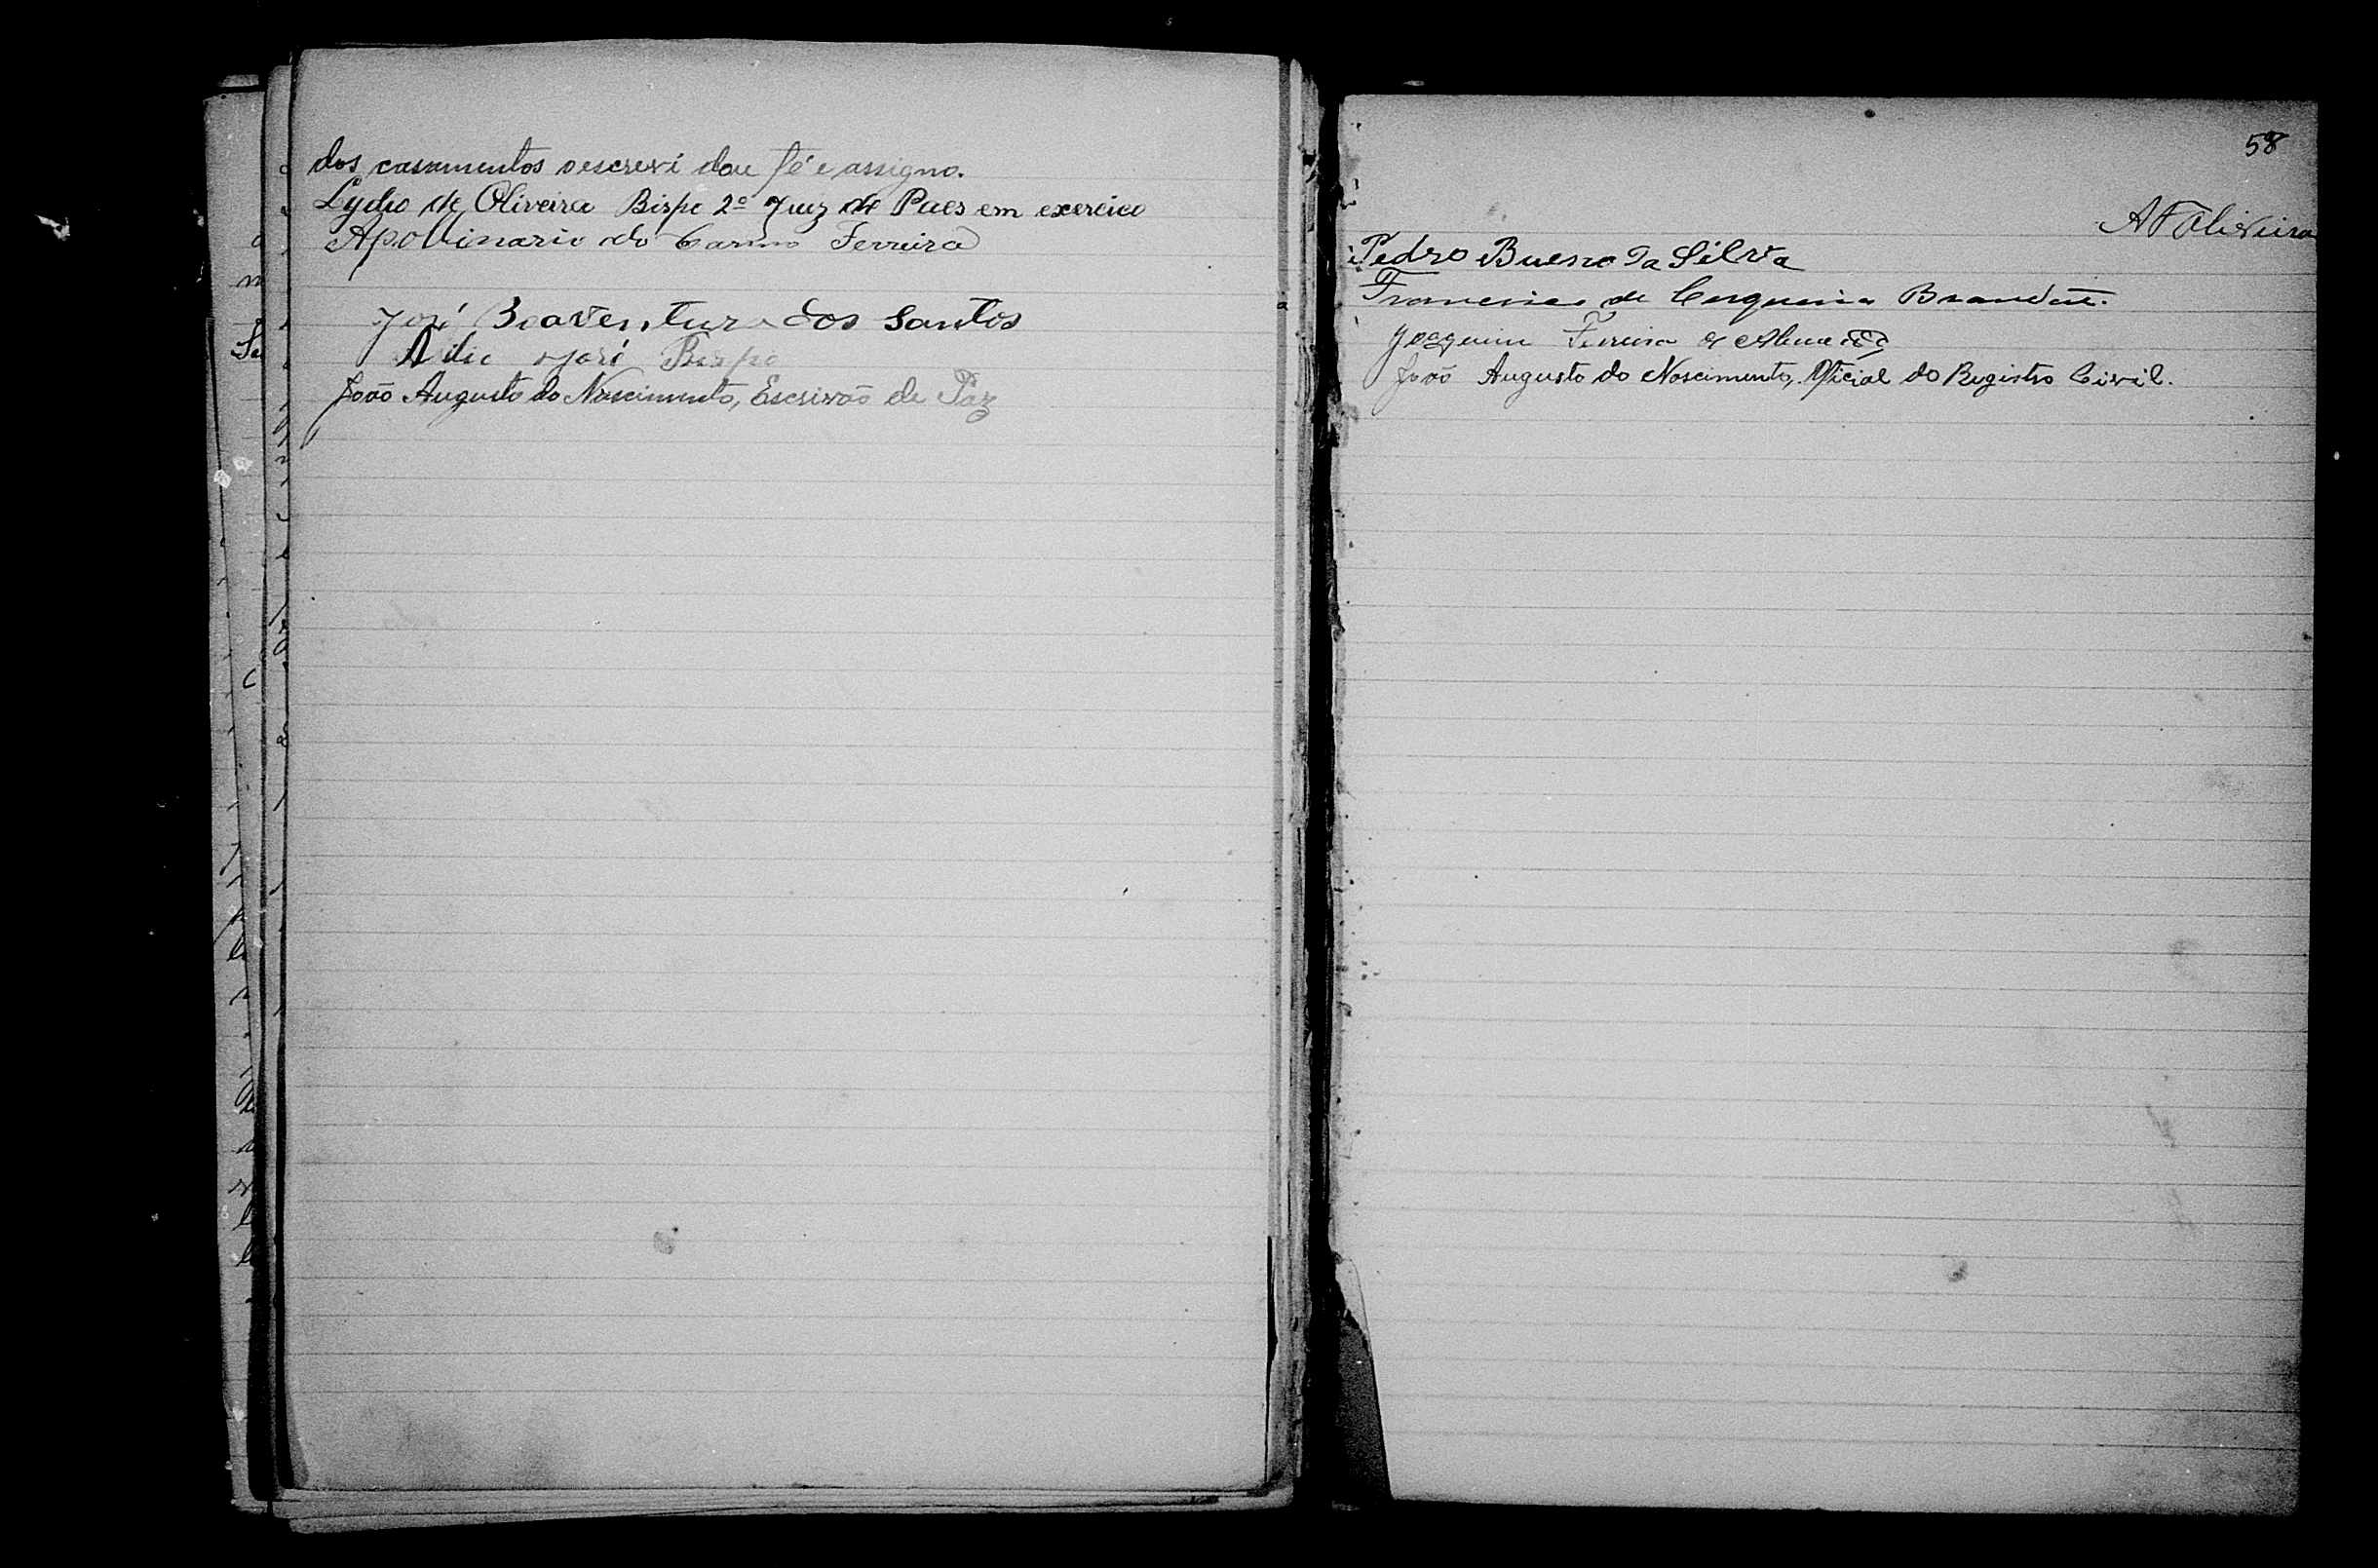 dos casamentos o escrevi dou fé e assigno.
Lydio de Oliveira Bispo 2º Juiz de Paes em exercico
Apolinario do Carmo Ferreira
José Boaventura dos Santos
José Bispo
João Augusto do Nascimento, Escrivão de Paz
58
AFOliveira
Pedro Bueno da Silva
Francisco de Cerqueira Brandão.
Joaquim Ferreira de Almeida
João Augusto do Nascimento, Oficial do Registro Civil.